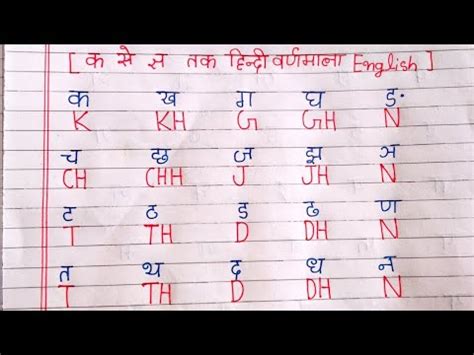 [ क से ज्ञ तक हिन्दी वर्णमाला English ]
क ख ग घ ङ
K KH G GH N
च छ ज झ ञ
CH CHH J JH N
ट ठ ड ढ ण
T TH D DH N
त थ द ध न
T TH D DH N